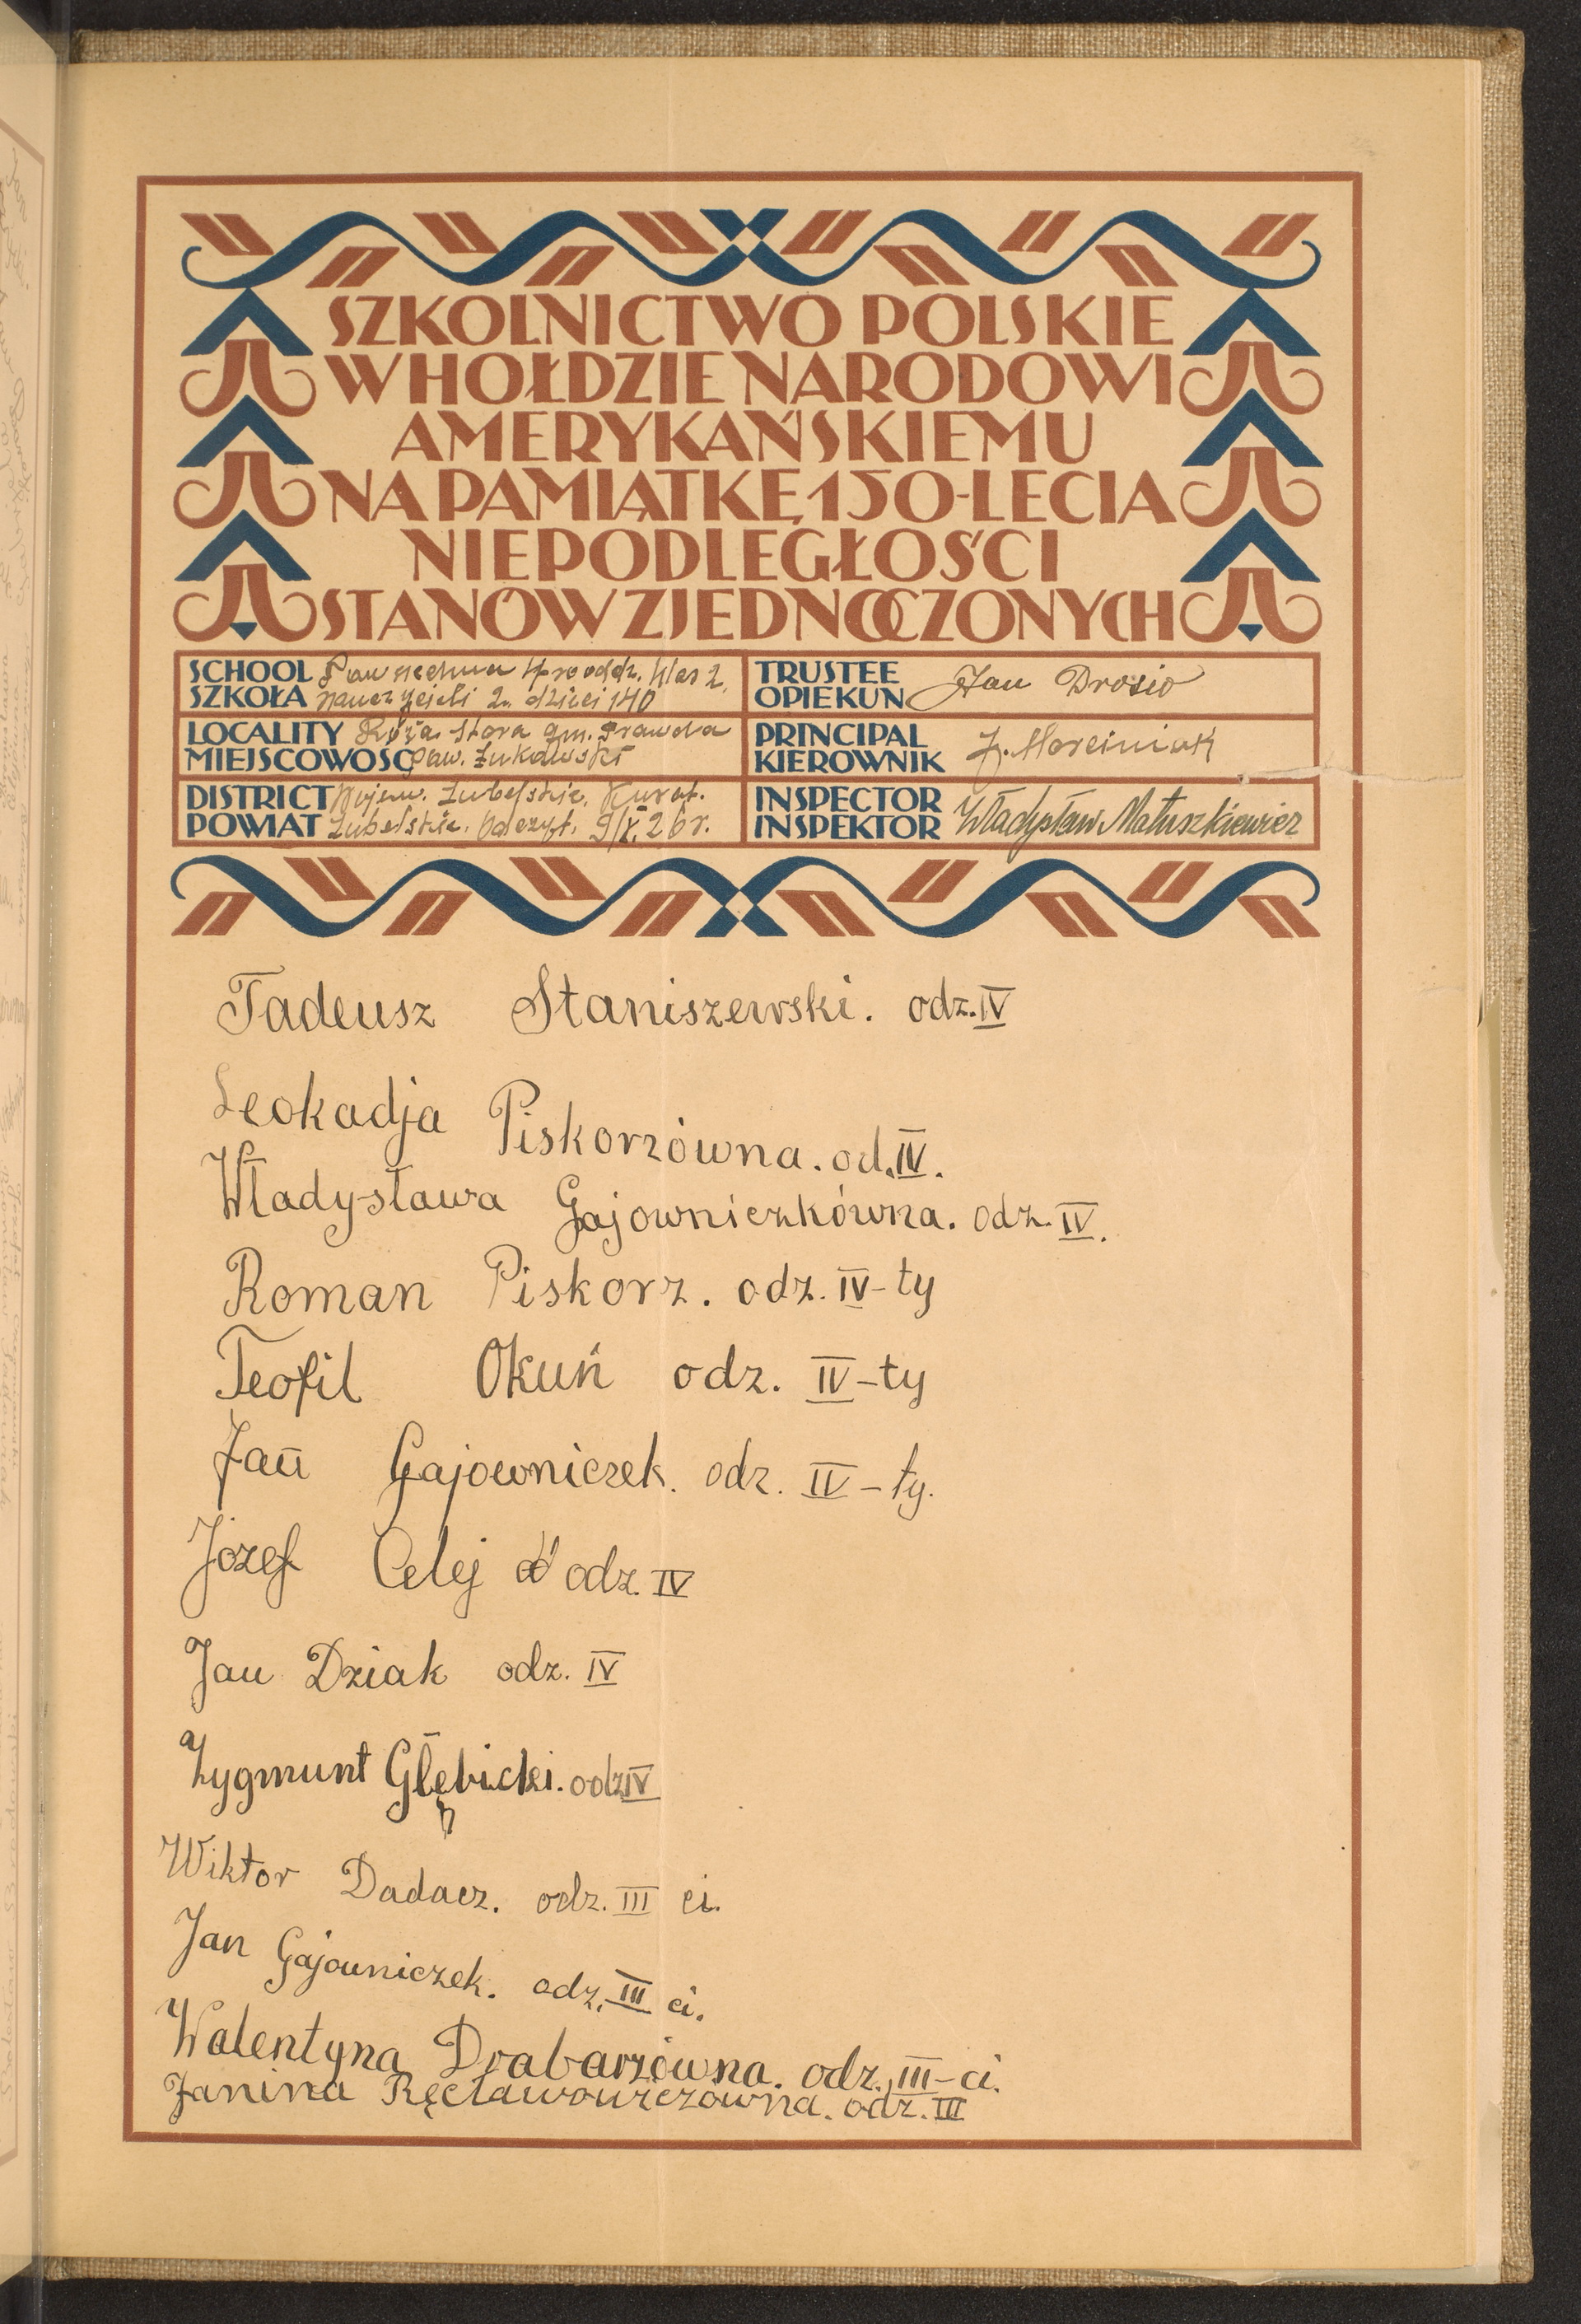 SZKOLNICTWO POLSKIE
W HOŁDZIE NARODOWI
AMERYKAŃSKIEMU
NA PAMIĄTKĘ 150-LECIA
NIEPODLEGŁOŚCI
STANÓW ZJEDNOCZONYCH
SCHOOL
SZKOŁA
Powszechna 4ro oddz. klas 2,
nauczycieli 2. dzieci 140
TRUSTEE
OPIEKUN
Jan Drosio
LOCALITY
MIEJSCOWOŚĆ
Róża Stara gm. Prawda
pow. Łukowski
PRINCIPAL
KIEROWNIK
J. Morciniak
DISTRICT
POWIAT
Wojew. Lubelskie, Kurat.
Lubelskie. 9/X. 26 r.
INSPECTOR
INSPEKTOR
Władysław Matuszkiewicz
Tadeusz Staniszewski. odz. IV
Leokadja Piskorzówna. od. IV.
Władysława Gajowniczkówna. odz. IV.
Roman Piskorz. odz. IV-ty
Teofil Okuń odz. IV-ty
Jan Gajowniczek. odz. IV-ty.
Józef Celej odz. IV
Jan Dziak odz. IV
Zygmunt Głębicki. odz IV
Wiktor Dadacz. odz. III ci.
Jan Gajowniczek. odz. III ci.
Walentyna Drabarzówna. odz. III-ci.
Janina Ręcławowiczówna. odz. III